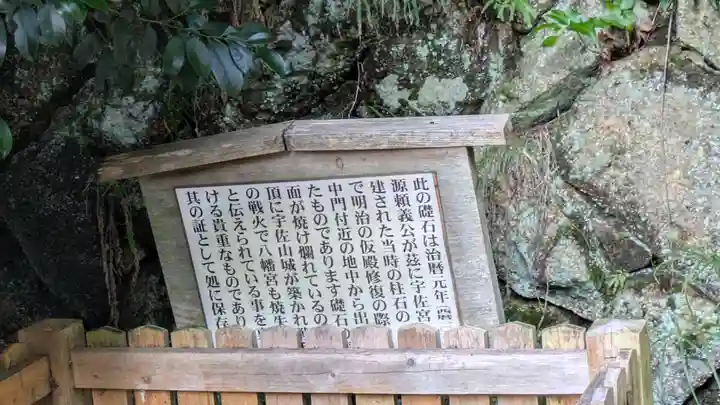 此の礎石は治暦元年
源頼義公が茲に宇佐宮
建された当時の柱石の
で明治の仮殿修復の際
中門付近の地中から出
たものであります礎石
面が焼け爛れているの
頂に宇佐山城が築かれ
の戦火で八幡宮も焼
と伝えられている事を
ける貴重なものであり
其の証として処に保存